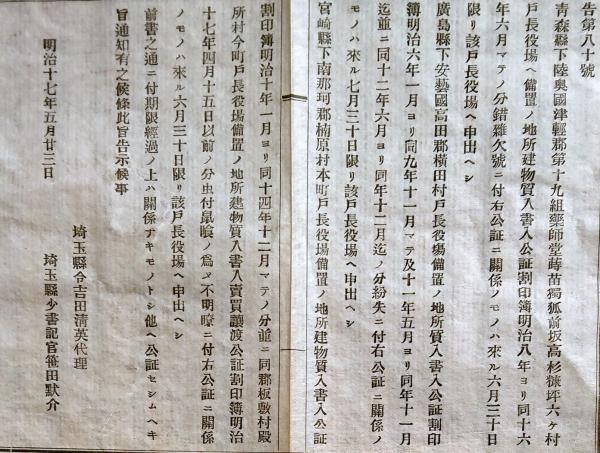 告第八十號
靑森縣下陸奧國津輕郡第十九組藥師堂蒔苗獨狐前坂高杉糠坪六ヶ村
戶長役場ヘ備置ノ地所建物質入書入公証割印簿明治八年ヨリ同十六
年六月マテノ分錯雜欠號ニ付右公証ニ關係ノモノハ來ル六月三十日
限リ該戶長役場ヘ申出ヘシ
廣島縣下安藝國高田郡橫田村戶長役塲備置ノ地所質入書入公証割印
簿明治六年一月ヨリ同九年十一月マテ及十一年五月ヨリ同年十一月
迄並ニ同十二年六月ヨリ同年十二月迄ノ分紛失ニ付右公証ニ關係ノ
モノハ來ル七月三十日限リ該戶長役場ヘ申出ヘシ
宮崎縣下南那珂郡楠原村本町戶長役場備置ノ地所建物質入書入公証
割印簿明治十年一月ヨリ同十四年十二月マテノ分並ニ同郡板敷村殿
所村今町戶長役場備置ノ地所建物質入書入賣買讓渡公証割印簿明治
十七年四月十五日以前ノ分虫付鼠喰ノ爲メ不明暸ニ付右公証ニ關係
ノモノハ來ル六月三十日限リ該戶長役場ヘ申出ヘシ
前書之通ニ付期限經過ノ上ハ關係ナキモノトシ他ヘ公証セシムヘキ
旨通知有之候條此旨告示候事
明治十七年五月廿三日
埼玉縣令吉田清英代理
埼玉縣少書記官笹田默介